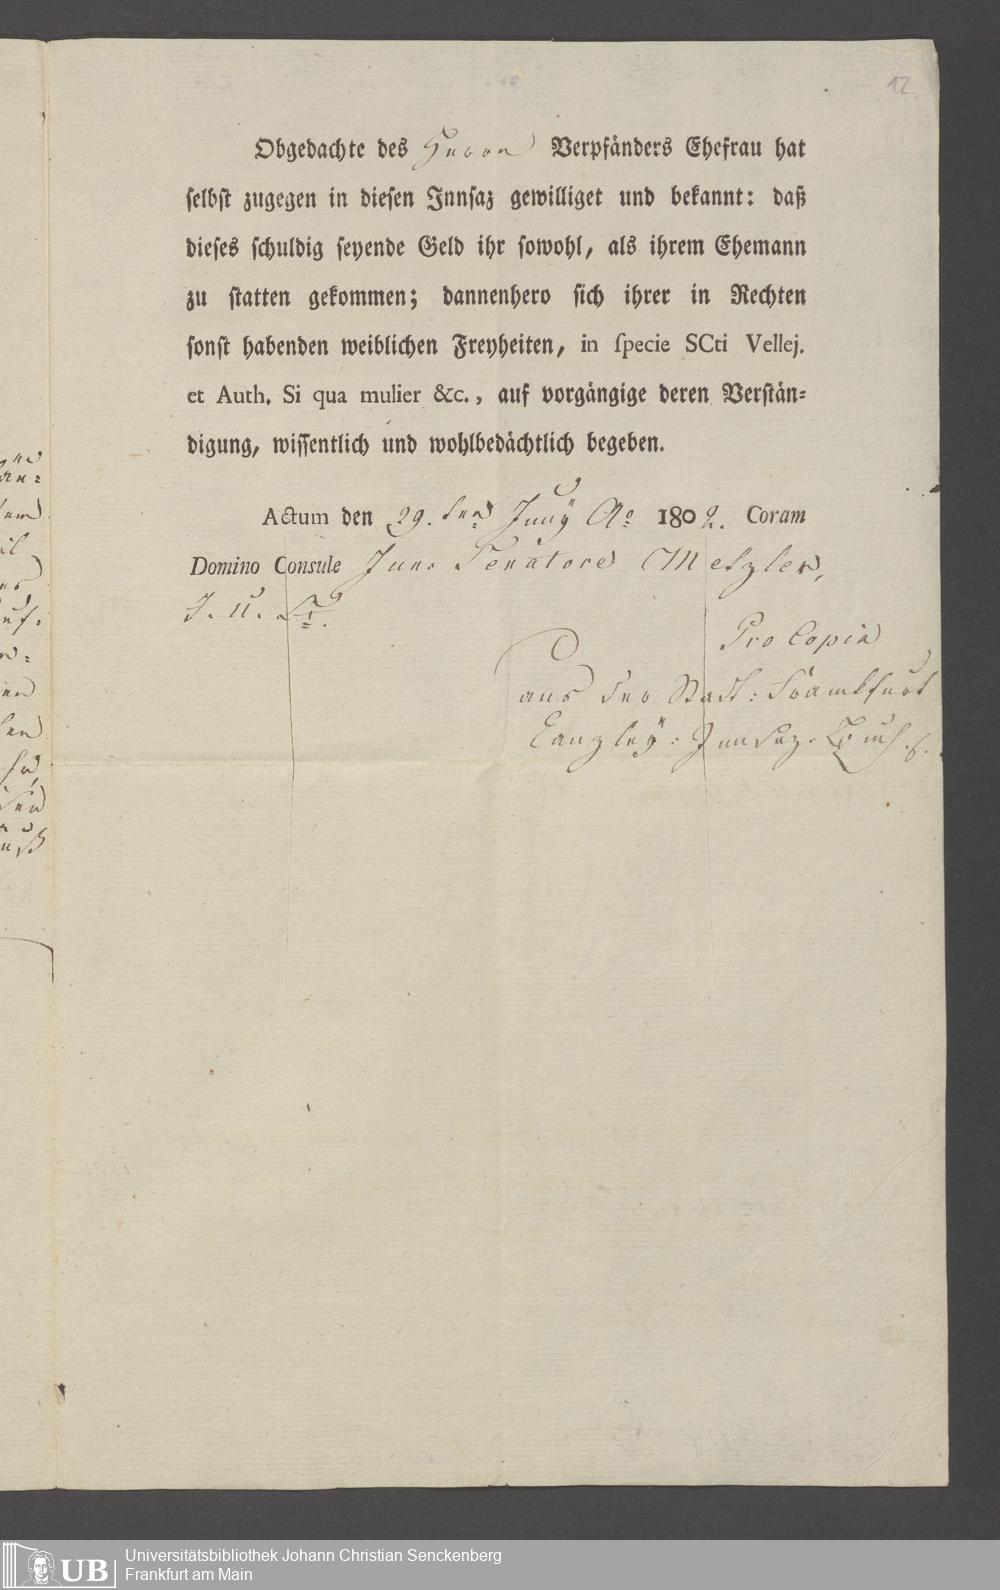 12
Obgedachte des Herrn Verpfänders Ehefrau hat
selbst zugegen in diesen Innsaz gewilliget und bekannt: daß
dieses schuldig seyende Geld ihr sowohl, als ihrem Ehemann
zu statten gekommen; dannenhero sich ihrer in Rechten
sonst habenden weiblichen Freyheiten, in specie SCti Vellej.
et Auth. Si qua mulier &c., auf vorgängige deren Verstän-
digung, wissentlich und wohlbedächtlich begeben.
Actum den 29. ten Juny Ao 1802. Coram
Domino Consule Jun. Senatore Metzler,
J. U. Lt.
Pro Copia
aus der Stadt: Frankfurt
Canzley: Innsaz-Buch.
Universitätsbibliothek Johann Christian Senckenberg
UB Frankfurt am Main